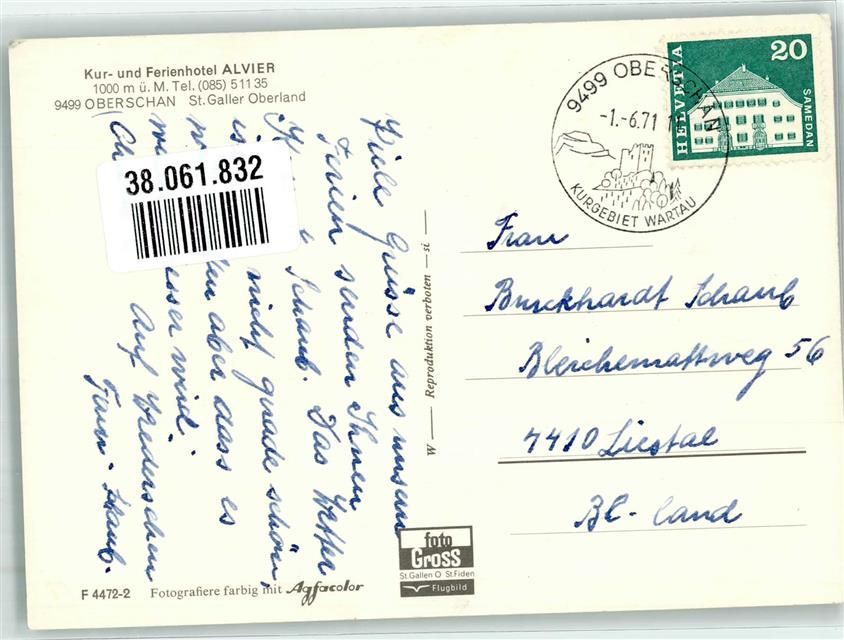 Kur- und Ferienhotel ALVIER
1000 m ü. M. Tel. (085) 5 11 35
9499 OBERSCHAN St. Galler Oberland
38.061.832
Viele Grüsse aus unsern
Ferien senden Ihnen
Schaub. Das Wetter
nicht gerade schön,
aber dass es
wird.
Auf Wiedersehen
Fam. Schaub.
W Reproduktion verboten st.
9499 OBERSCHAN
-1.-6.71
KURGEBIET WARTAU
HELVETIA
20
SAMEDAN
Frau
Burckhardt Schaub
Bleichemattweg 56
4410 Liestal
BL-land
foto
GROSS
St. Gallen O St. Fiden
Flugbild
F 4472-2 Fotografiere farbig mit Agfacolor